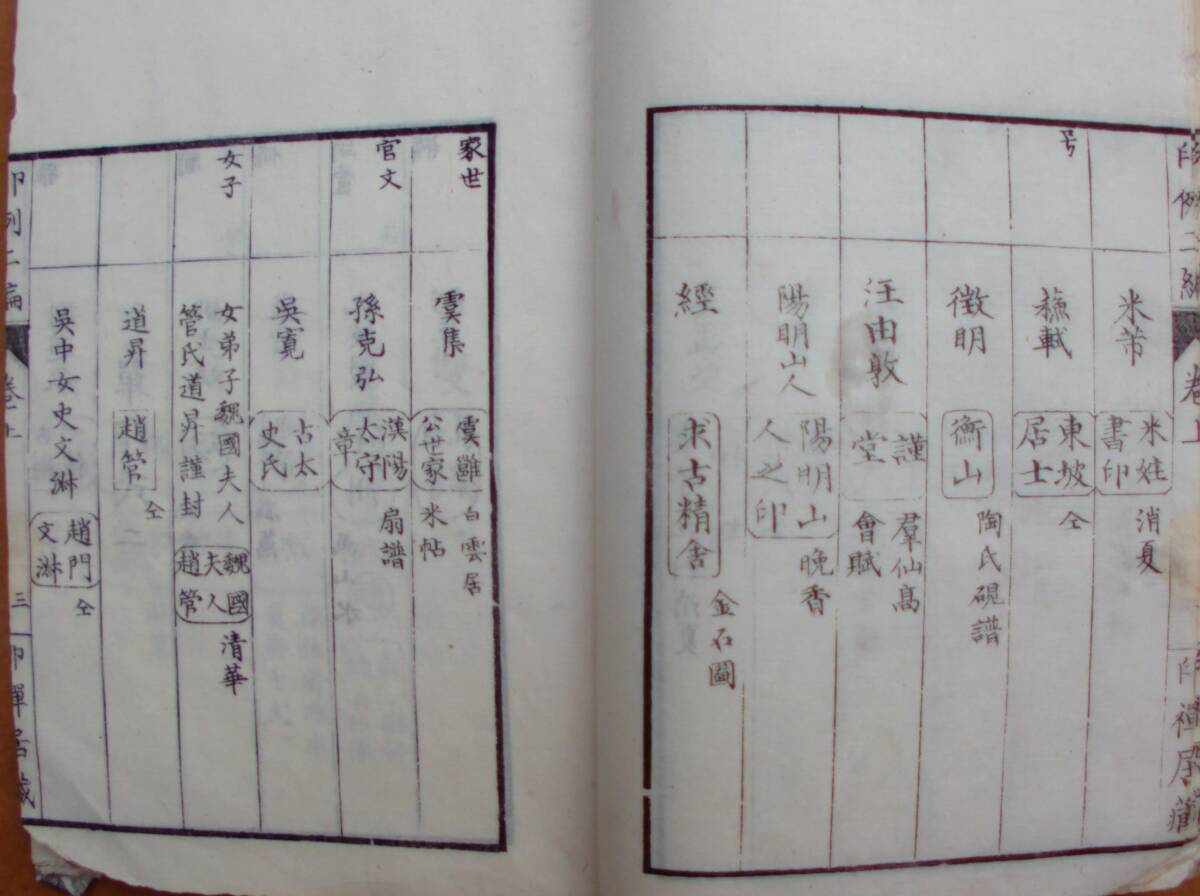 印例二編
卷上
印禪居藏
号
米芾
米姓
書印
消夏
蘓軾
東坡
居士
仝
徵明
衡山
陶氏硯譜
汪由敦
謹
堂
羣仙高
會賦
陽明山人
陽明山
人之印
晚香
經
求古精舍
金石圖
家世
虞集
虞雝
公世家
白雲居
米帖
官文
孫克弘
漢陽
太守
章
扇譜
吳寬
古太
史氏
女子
女弟子魏國夫人
管氏道昇謹封
魏國
夫人
趙管
清華
道昇
趙管
仝
吳中女史文淋
趙門
文淋
仝
印例二編
卷上
三
印禪居藏